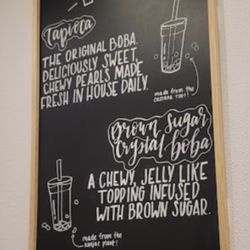 Tapioca
THE ORIGINAL BOBA.
DELICIOUSLY SWEET,
CHEWY PEARLS MADE
FRESH IN HOUSE DAILY.
made from the
cassava root!
Brown Sugar
Crystal boba
A CHEWY, JELLY LIKE
TOPPING INFUSED
WITH BROWN SUGAR.
made from the
konjac plant!